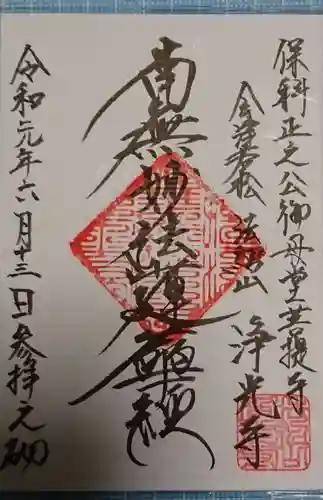 保科正之公御母堂菩提寺
会津若松 法紹山 浄光寺
南無妙法蓮華經
令和元年六月十三日参拝之砌